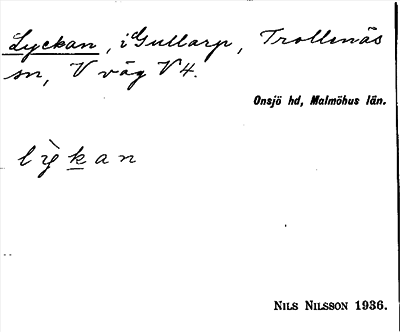 Lyckan, i Gullarp, Trollenäs
sn, V väg V 4.
Onsjö hd, Malmöhus län.
lỳkan
NILS NILSSON 1936.